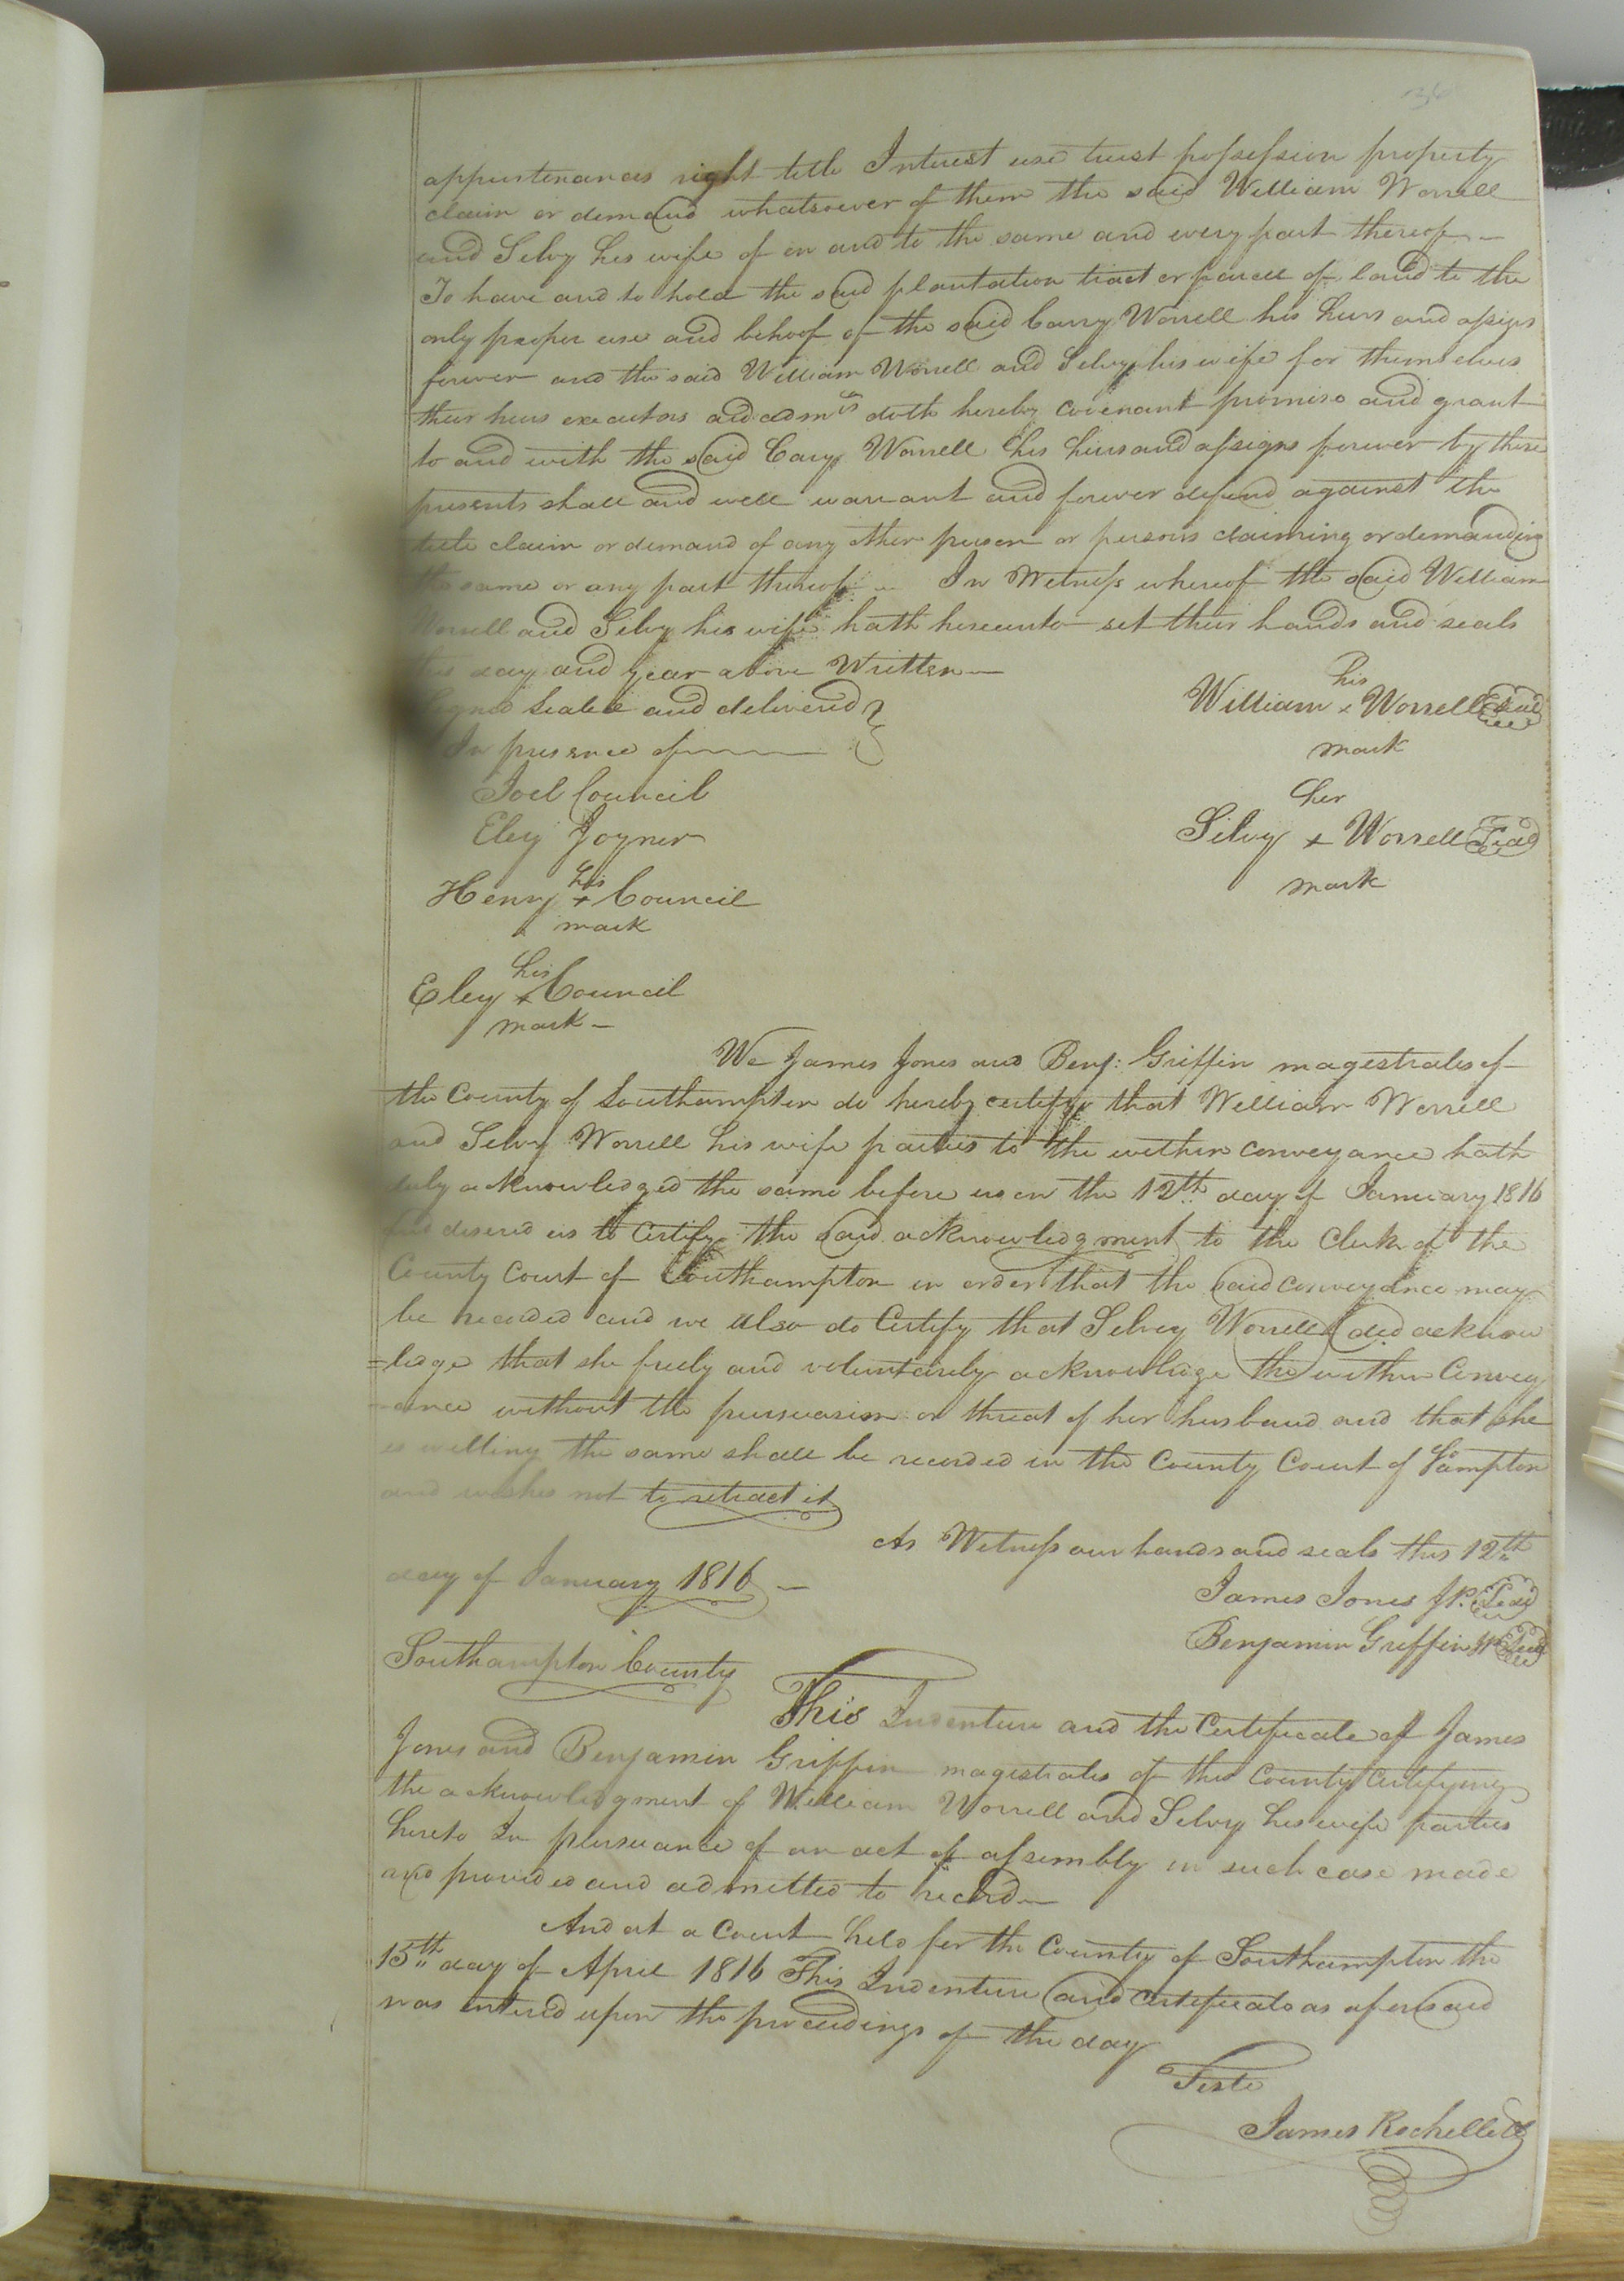 appurtenances right title Interest use trust possession property
claim or demand whatsoever of them the said William Worrell
and Selvy his wife of in and to the same and every part thereof —
To have and to hold the said plantation tract or parcell of land to the
only proper use and behoof of the said Carry Worrell his heirs and assigns
forever and the said William Worrell and Selvy his wife for themselves
their heirs executors and admrs doth hereby covenant promise and grant
to and with the said Cary Worrell his heirs and assigns forever by these
presents shall and well warrant and forever defend against the
title claim or demand of any other person or persons claiming or demanding
the same or any part thereof — In Witness whereof the said William
Worrell and Selvy his wife hath hereunto set their hands and seals
this day and year above Written —
Signed Sealed and delivered
In presence of
his
William x Worrell Seal
mark
Joel Council
Eley Joyner
her
Silvy x Worrell Seal
mark
his
Henry x Council
mark
his
Eley x Council
mark —
We James Jones and Benj: Griffin magestrates of
the County of Southampton do hereby certify that William Worrell
and Selvy Worrell his wife parties to the within conveyance hath
duly acknowledged the same before us on the 12th day of January 1816
and desired us to Certify the said acknowledgment to the Clerk of the
County Court of Southampton in order that the said conveyance may
be recorded and we also do Certify that Selvey Worrell did acknow
=ledge that she freely and voluntarily acknowledge the within Convey
-ance without the persuasion or threat of her husband and that she
is willing the same shall be recorded in the County Court of Sampton
and wishes not to retract it
As Witness our hands and seals this 12th
day of January 1816 —
James Jones JP. Seal
Benjamin Griffin JP Seal
Southampton County
This Indenture and the Certificate of James
Jones and Benjamin Griffin magestrates of this County Certifying
the acknowledgment of William Worrell and Selvy his wife parties
hereto In pursuance of an act of assembly in such case made
and provided and admitted to record —
And at a Court held for the County of Southampton the
15th day of April 1816 This Indenture and Certificate as aforesaid
was entered upon the proceedings of the day
Teste
James Rochelle Cl